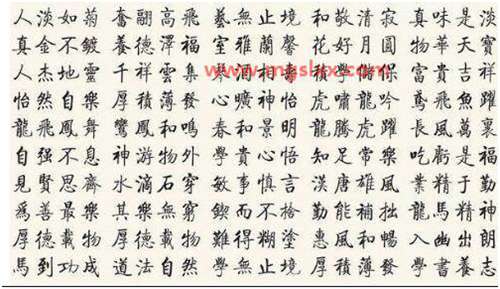 人淡如菊 奮翮高飛 藝無止境 和敬清寂 真味是淡
真金不鍍 養德澤福 室雅蘭馨 花好月圓 物華天寶
人杰地靈 千祥雲集 富貴吉祥
怡然自樂 厚積薄發 心曠神怡 虎嘯龍吟 鳶飛魚躍
龍飛鳳舞 鸞鳳和鳴 春和景明 龍騰虎躍 長風萬里
自强不息 神游物外 學貴心悟 知足常樂 吃虧是福
見賢思齊 水滴石穿 敏事慎言 漢唐雄風 業精于勤
爲善最樂 其樂無窮 鍥而不捨 勤能補拙 龍馬精神
厚德載物 厚德載物 難得糊塗 惠風和暢 入幽出朗
馬到功成 道法自然 學無止境 厚積薄發 學書養志